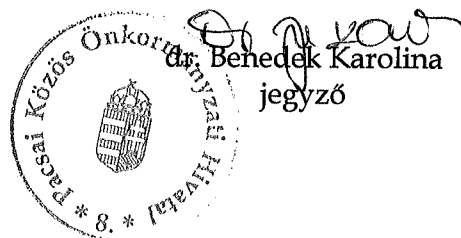 dr. Benedek Karolina
jegyző
Pacsai Közös Önkormányzati Hivatal
* 8. *